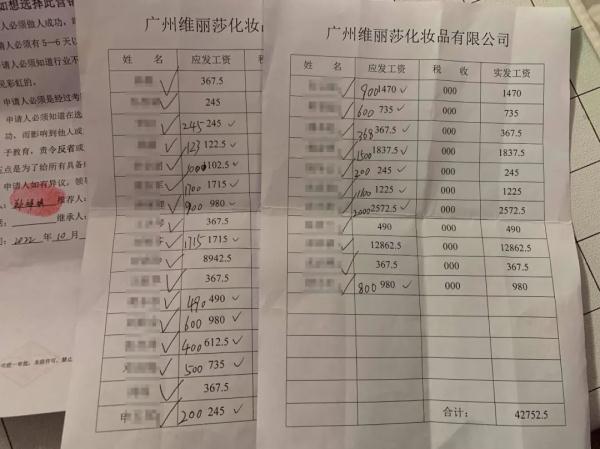 如想选择此营销
人必须做人成功，
请人必须有5—6天以
请人必须知道行业不
见彩虹的。
申请人必须是经过考
申请人必须知道在选
功，而影响到他人或
予教育，责令反省或
五点是为了给所有具备
申请人如有异议，领导
推荐人：
继承人：
2022 年 10 月
广州维丽莎化妆品有限公司
姓 名 应发工资
367.5
245
245 245
123 122.5
1000 1102.5
1700 1715
900 980
367.5
1715 1715
8942.5
367.5
490 490
600 980
400 612.5
500 735
367.5
200 245
广州维丽莎化妆品有限公司
姓 名 应发工资 税 收 实发工资
900 1470 000 1470
600 735 000 735
368 367.5 000 367.5
1500 1837.5 000 1837.5
200 245 000 245
1100 1225 000 1225
2000 2572.5 000 2572.5
490 000 490
12862.5 000 12862.5
367.5 000 367.5
800 980 000 980
合计： 42752.5